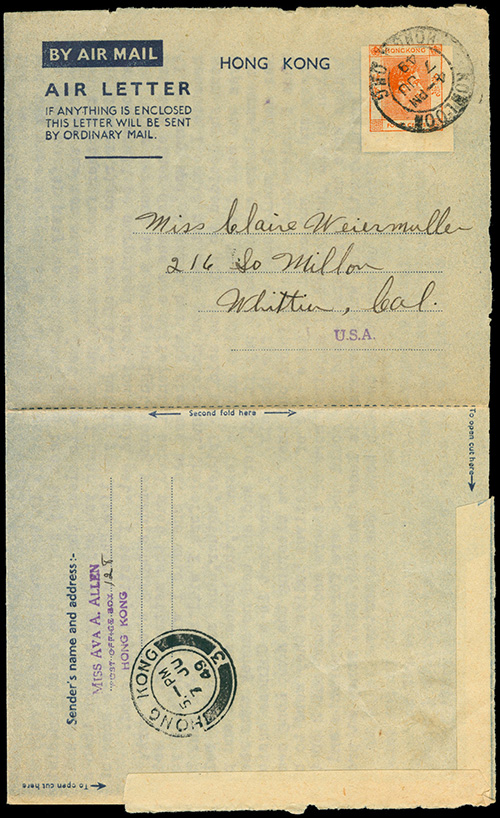 BY AIR MAIL
AIR LETTER
IF ANYTHING IS ENCLOSED
THIS LETTER WILL BE SENT
BY ORDINARY MAIL.
HONG KONG
HONG KONG
KOWLOON
4-PM
7 JU
49
Miss Claire Weiermuller
216 So Millon
Whittier, Cal.
U.S.A.
Second fold here
To open cut here
Sender's name and address :-
MISS AVA A. ALLEN
POST OFFICE BOX 128
HONG KONG
HONG KONG
5-PM
7 JU
49
3
To open cut here